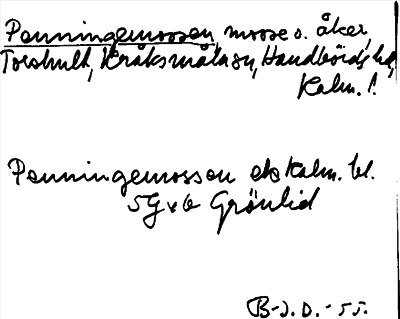 Penningemossen, mosse o. åker,
Torshult, Kråksmåla sn, Handbörds hd,
Kalm. l.
Penningemossen ek Kalm. bl.
5G v 6 Grönlid
B-J. D. -55.